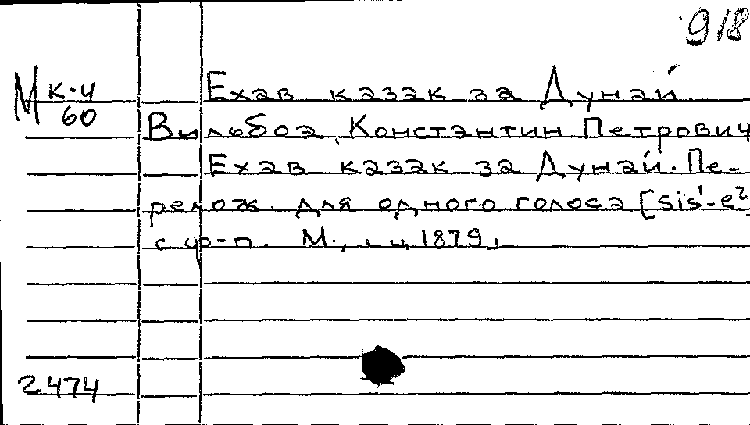 918
М к-4
60
Ехав казак за Дунай
Вильбоа, Константин Петрович
Ехав казак за Дунай. Пе-
релож. для одного голоса [sis¹-e²
с ф-п. М., ц. 1879,
2474